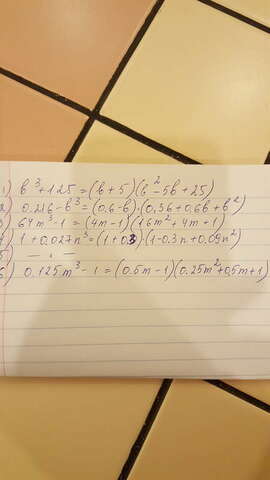 1) b³+125=(b+5)(b²-5b+25)
2) 0.216-b³=(0.6-b)·(0,36+0,6b+b²)
3) 64m³-1=(4m-1)(16m²+4m+1)
4) 1+0.027n³=(1+0.3)(1-0.3n+0.09n²)
5) —„—
6) 0.125m³-1=(0.5m-1)(0.25m²+0,5m+1)